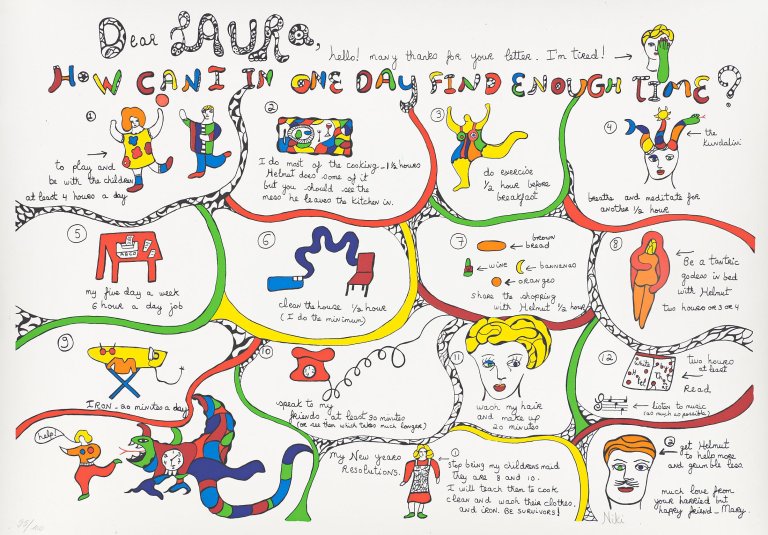 Dear LAURA,
hello! many thanks for your letter. I'm tired!
HOW CAN I IN ONE DAY FIND ENOUGH TIME?
1
to play and
be with the children
at least 4 hours a day
2
I do most of the cooking _ 1½ hours
Helmut does some of it
but you should see the
mess he leaves the kitchen in.
3
do exercise
½ hour before
breakfast
4
the
Kundalini
breathe and meditate for
another ½ hour
5
my five day a week
6 hour a day job
6
clean the house ½ hour
(I do the minimum)
7
brown
bread
wine
bannenas
oranges
share the shopping
with Helmut ½ hour
8
Be a tantric
godess in bed
with Helmut
two hours or 3 or 4
9
IRON _ 20 minutes a day
10
speak to my
friends _ at least 30 minutes
(or see them which takes much longer)
11
wash my hair
and make up
20 minutes
12
White
Hotel
The
two hours
at least
Read
listen to music
(as much as possible)
help!
My New Years
Resolutions.
1
Stop being my childrens maid
they are 8 and 10.
I will teach them to cook
clean and wash their clothes.
and iron. BE SURVIVORS!
2
get Helmut
to help more
and grumble less.
much love from
your harried but
happy friend _ Mary.
Niki